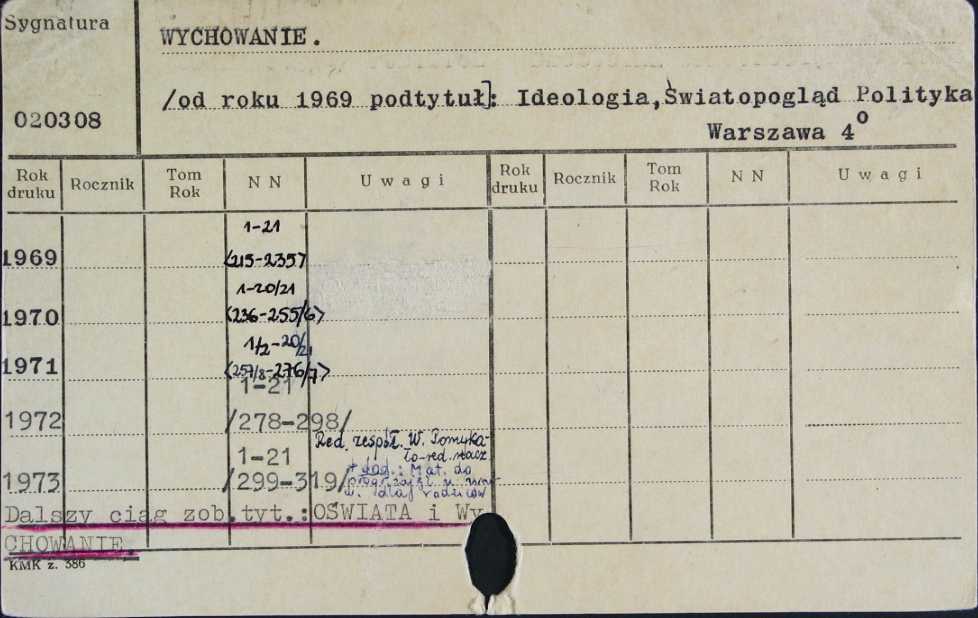 Sygnatura
WYCHOWANIE.
/od roku 1969 podtytuł]: Ideologia, Światopogląd Polityka
020308
Warszawa 4°
Rok druku Rocznik Tom Rok N N Uwagi Rok druku Rocznik Tom Rok N N Uwagi
1-21
1969 <215-235>
1-20/21
1970 <236-255/6>
1/2-20/21
1971 <257/8-276/7>
1-21
1972 /278-298/
Red. zespół. W. Pomyka-
1-21 ło-red. nacz
+ dod.: Mat. do
1973 /299-319/
Dalszy ciąg zob.tyt.:OŚWIATA i Wy
CHOWANIE.
KMK z. 386